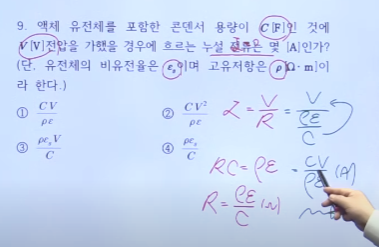 9. 액체 유전체를 포함한 콘덴서 용량이 C[F]인 것에
V[V]전압을 가했을 경우에 흐르는 누설 전류는 몇 [A]인가?
(단, 유전체의 비유전율은 εₛ이며 고유저항은 ρ[Ω·m]이
라 한다.)
① CV/ρε
② CV²/ρε
③ ρεₛV/C
④ ρεₛ/C
I = V/R = V/(ρε/C)
RC = ρε
= CV/ρε (A)
R = ρε/C (Ω)